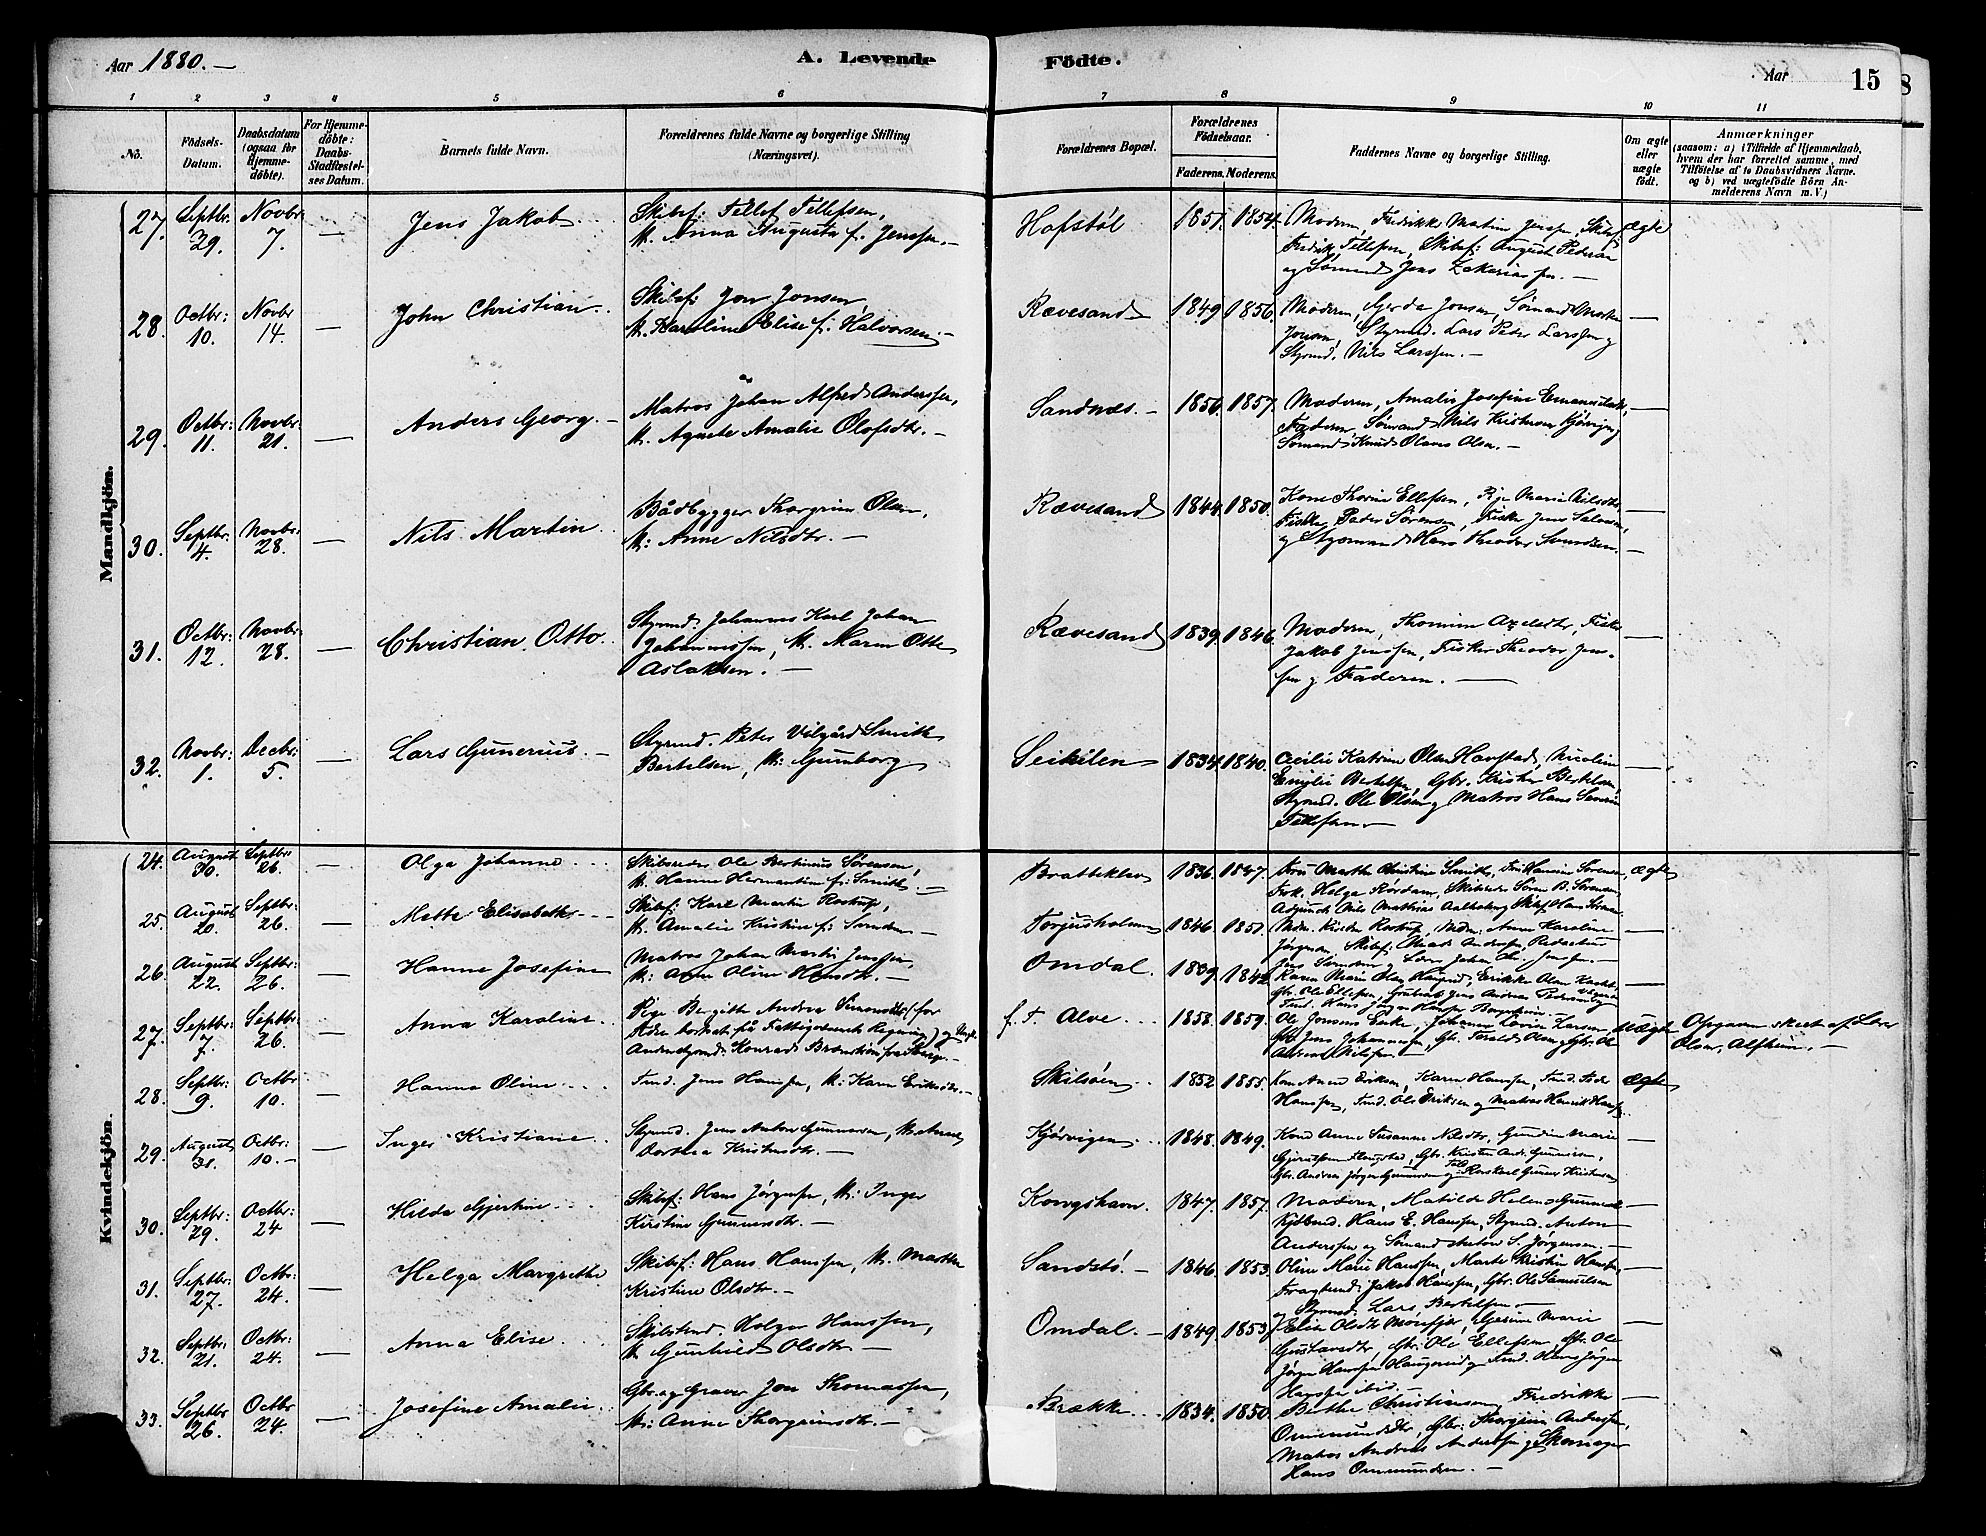 Aar 1880. —
A. Levende
Födte.
Aar
15
1 2 3 4 5 6 7 8 9 10 11
No.
Födsels-
Datum.
Daabsdatum
(ogsaa for
Hjemme-
döbte).
For Hjemme-
döbte:
Daabs-
Stadfæstel-
ses Datum.
Barnets fulde Navn.
Forældrenes fulde Navne og borgerlige Stilling
(Næringsvei).
Forældrenes Bopæl.
Forældrenes
Födselsaar.
Faderens. Moderens.
Faddernes Navne og borgerlige Stilling.
Om ægte
eller
uægte
födt.
Anmærkninger
(saasom: a) i Tilfælde af Hjemmedaab,
hvem der har forrettet samme, med
Tilföielse af to Daabsvidners Navne.
og b) ved uægtefödte Börn An-
melderens Navn m.V.)
Mandkjön.
27. Septbr. 29. Novbr 7. — Jens Jakob
Skibsf: Tellef Tellefsen,
M. Anna Augusta f. Jenssen. —
Hofstøl 1851. 1854.
Moderen, Fredrikke Jenssen, Skibsf
Fredrik Tellefsen, Skibsf: August Pedersen
og Sömand Jens Zakariassen. —
ægte
28. Octbr: 10. Novbr 14. — John Christian
Skibsf: Jon Jonsen,
M. Karoline Elise f: Halvorsen. —
Rævesand 1849 1856.
Moderen, Gerda Jonsen, Sömand
Jonsen, Styrmd. Lars Peder Larssen og
Styrmd. Nils Larssen. —
—
29. Octbr: 11. Novbr: 21. — Anders Georg. —
Matros Johan Alfred Anderssen,
M. Agnete Amalie Olofsdtr. —
Sandnæs. — 1850. 1857.
Moderen, Amalie Josefine
Faderen, Sömand Nils Kristensen Kjörvigen
Sömand Knud Olaves Olsen. —
—
30. Septbr. 4. Novbr: 28. — Nils Martin
Bådbygger Thorgrim Olsen,
M: Anne Nilsdtr. —
Rævesand 1844. 1850.
Kone Thorine Ellefsen, Pige Marie Nilsdtr,
Fisker Peder Sörensen, Fisker Jens
og Styrmand Hans Theodor Svendsen. —
—
31. Octbr: 12. Novbr: 28. — Christian Otto
Styrmd: Johannes Karl Johan
Johannessen, M. Maren Otte
Aslaksen. —
Rævesand 1839. 1846.
Moderen, Thomine Axelsdtr, Fisker
Jakob Jenssen, Fisker Theodor Jens-
sen og Faderen. —
—
32. Novbr: 1. Decbr: 5. — Lars Gunerius. —
Styrmd. Peter Vilgård Smith
Bertelsen, M: Gunborg
Seikilen 1834. 1840.
Cecilie Katrine Olsen Havstad, Nicoline
Emilie Bertelsen, Gbr. Krister Bertelsen,
Styrmd. Ole Olsen og Matros Hans Severin
Tellefsen. —
—
Kvindekjön.
24. August 30. Septbr: 26. — Olga Johanne
Skibsreder Ole Bertinius Sörensen,
M. Hanne Hermantine f: Smith. —
Bratteklev 1836. 1847.
Fru Marthe Christine Smith, Fru Hansine Sörensen,
Frk. Helga Rördam, Skibsreder Sören B. Sörensen,
Adjunct Nils Mathias Aalholm og Skibsf. Hans
ægte
25. August 20. Septbr: 26. — Mette Elisabeth
Skibsf: Karl Martin Rostrup,
M. Amalie Kristine f: Svendsen —
Torjusholmen 1846 1851.
Mdm. Kirsten Rostrup, Mdm. Anne Karoline
Jörgensen, Skibsf: Mads Andersen, Redacteur
Jens Svendsen og Johan Jenssen. —
—
26. August 22. Septbr: 26. — Hanne Josefine
Matros Johan Martin Jenssen,
M: Anne Oline Hansdtr. —
Omdal. 1839. 1842.
Karen Marie Olsen Haugerud, Erikke Olsen
Gbr. Ole Ellefsen, Jens Andreas Pedersen
Hans Jörgen Hanssen
—
27. Septbr: 7. Septbr: 26. — Anna Karoline
Pige Bergithe Andrea Simonsdtr (før
bortsat på Fattigvæsenets Regning) og
Konrad
f. T. Alve 1858. 1859.
Ole Jonsens Enke, Johanne Lovise Larsen,
Jens Johannessen, Gbr. Terald Olsen og Gbr. Ole
Nilsen —
uægte
Opgaven skeet af Lærer
Olsen, Alfheim. —
28. Septbr: 9. Octbr 10. — Hanna Oline
Tmd. Jens Hanssen, M: Karen Eriksdtr. —
Skilsöen 1852 1855.
Kone Anne Eriksen, Karen Hanssen, Tmd. Peder
Hanssen, Tmd. Ole Eriksen og Matros Henrik Hanssen
ægte
29. August 31. Octbr: 10. — Inger Kristiane
Styrmd. Jens Anton Gunnersen, M: Anne
Dorthea Kristensdtr. —
Kjörvigen 1848. 1849.
Kone Anne Susanne Nilsdtr, Gundine Marie
Gjerulfsen Haugstad, Gbr. Kristen And. Gunnersen,
Gbr. Andreas Jörgen Gunnersen og Gunner Kristensen
—
30. Septbr: 29. Octbr: 24 — Hilda Gjertine
Skibsf: Hans Jörgensen, M: Inger
Kirstine Gunnersdtr. —
Kongshavn. 1847. 1857.
Moderen, Matilde Helene
Kjöbmd. Hans E. Hanssen, Styrmd. Anton
Anderssen og Sömand S. Jörgensen. —
—
31. Septbr: 27. Octbr: 24. — Helga Margrethe
Skibsf: Hans Hanssen, M. Marthe
Kristine Olsdtr. —
Sandstö. — 1846. 1853.
Oline Marie Hanssen, Marte Kristine Hanssen,
Jakob Hanssen, Gbr. Ole Samuelsen
og Styrmd: Lars Bertelsen. —
—
32. Septbr: 21. Octbr: 24. — Anna Elise
Skibstmd. Holger Hanssen,
M. Gunhild Olsdtr. —
Omdal. — 1849. 1853.
Elise Olsdtr Mörefjær, Gjerine Marie
Gustavsdtr, Gbr: Ole Ellefsen, Gbr. Ole
Jörgen Hanssen Haugerud og Tmd. Hans Jörgen
Hanssen ibid. —
—
33. Septbr 26. Octbr 24. — Josefine Amalie
Gbr. og Graver Jon Thomassen,
M: Anne Thorgrimsdtr. —
Brække 1834. 1850.
Berthe Christiansen, Fredrikke
Ommundsdtr, Gbr: Thorgrim Anderssen,
Matros Andreas Anderssen og Skomager
Hans Ommundsen. —
—